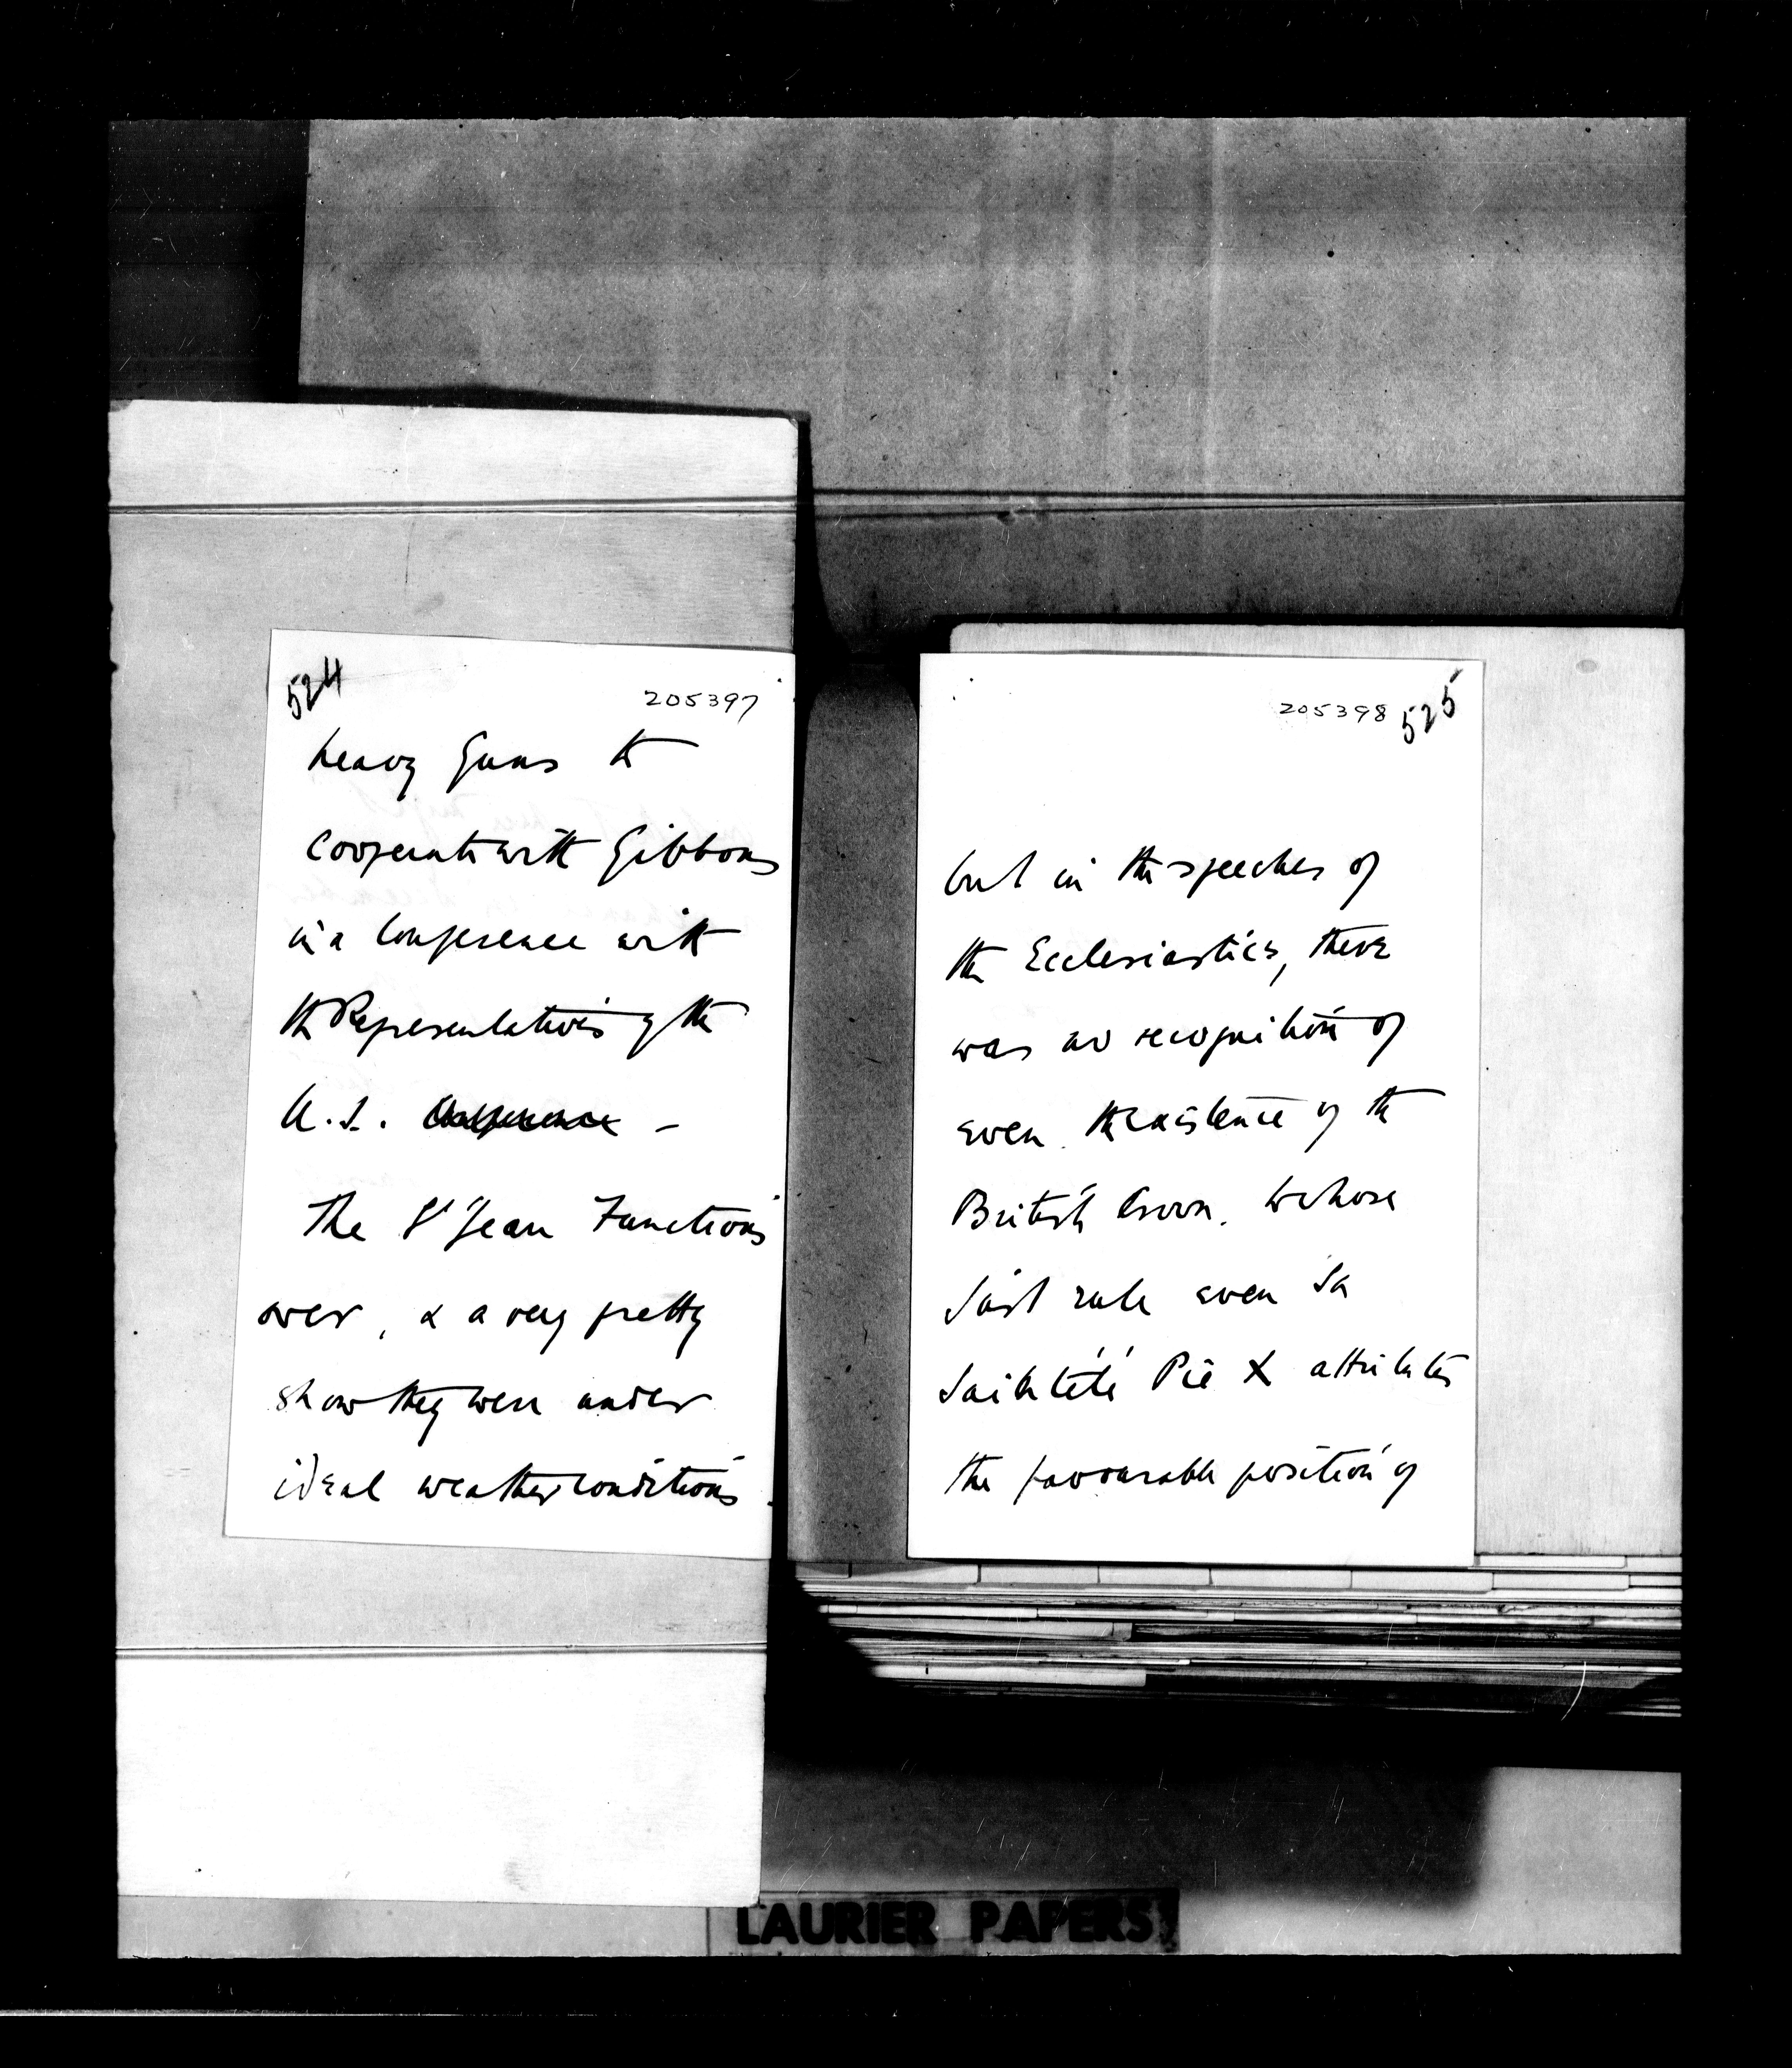 524
205397
heavy Guns to
cooperate with Gibbons
in a Conference with
the Representatives of the
U.S. Conference –
The St Jean Functions
over, & a very pretty
show they were under
ideal weather conditions.
205398
525
but in the speeches of
the Ecclesiastics, there
was no recognition of
even the existence of the
British Crown. to whose
just rule even Sa
Sainteté Pie X attributes
the favourable position of
LAURIER PAPERS